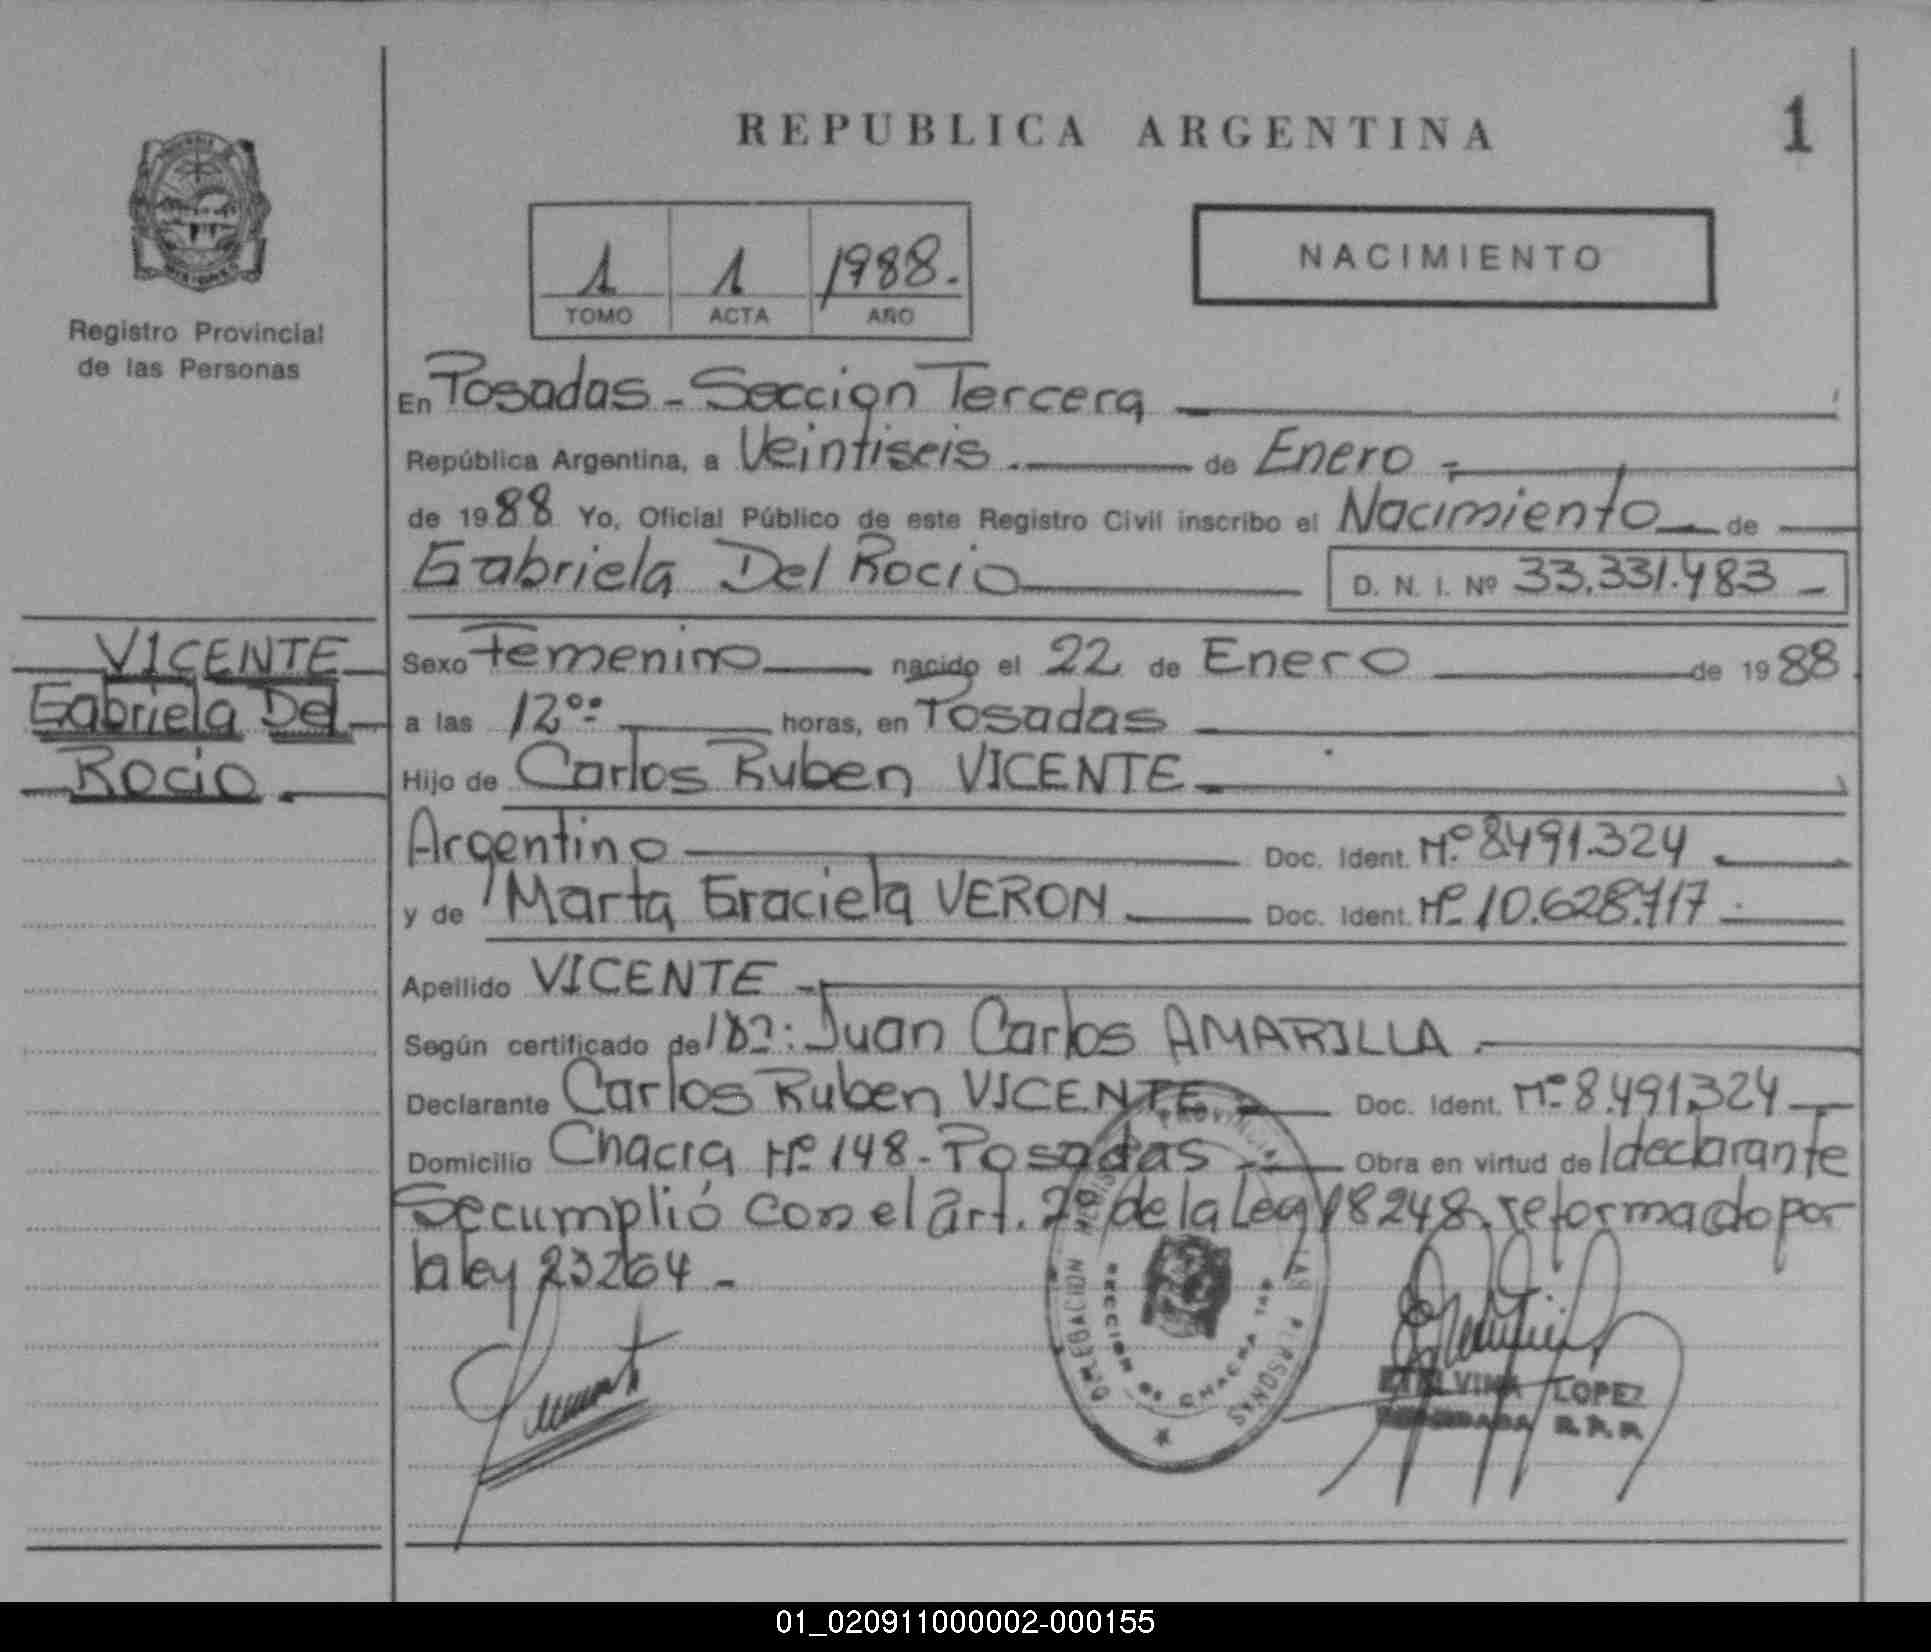 REPUBLICA ARGENTINA
1
NACIMIENTO
1 1 1988.
TOMO ACTA AÑO
Registro Provincial
de las Personas
En Posadas - Seccion Tercera
República Argentina, a Veintiseis. de Enero -
de 1988 Yo, Oficial Público de este Registro Civil inscribo el Nacimiento de
Gabriela Del Rocio D. N. I. Nº 33.331.483 -
VICENTE
Gabriela Del
Rocio.
Sexo Femenino nacido el 22 de Enero de 1988
a las 12°° horas, en Posadas
Hijo de Carlos Ruben VICENTE
Argentino Doc. Ident. Nº 8.491.324
y de Marta Graciela VERON Doc. Ident. Nº 10.628.717
Apellido VICENTE -
Según certificado de Juan Carlos AMARILLA.
Declarante Carlos Ruben VICENTE Doc. Ident. Nº 8.491324
Domicilio Chacra Nº 148 - Posadas - Obra en virtud de l declarante
Se cumplió con el art. 2º de la Ley 18248, reformado por
la ley 23264 -
DELEGACION REGISTRO PROVINCIAL DE LAS PERSONAS
SECCION DE CHACRA
LOPEZ
R.P.P.
01_020911000002-000155